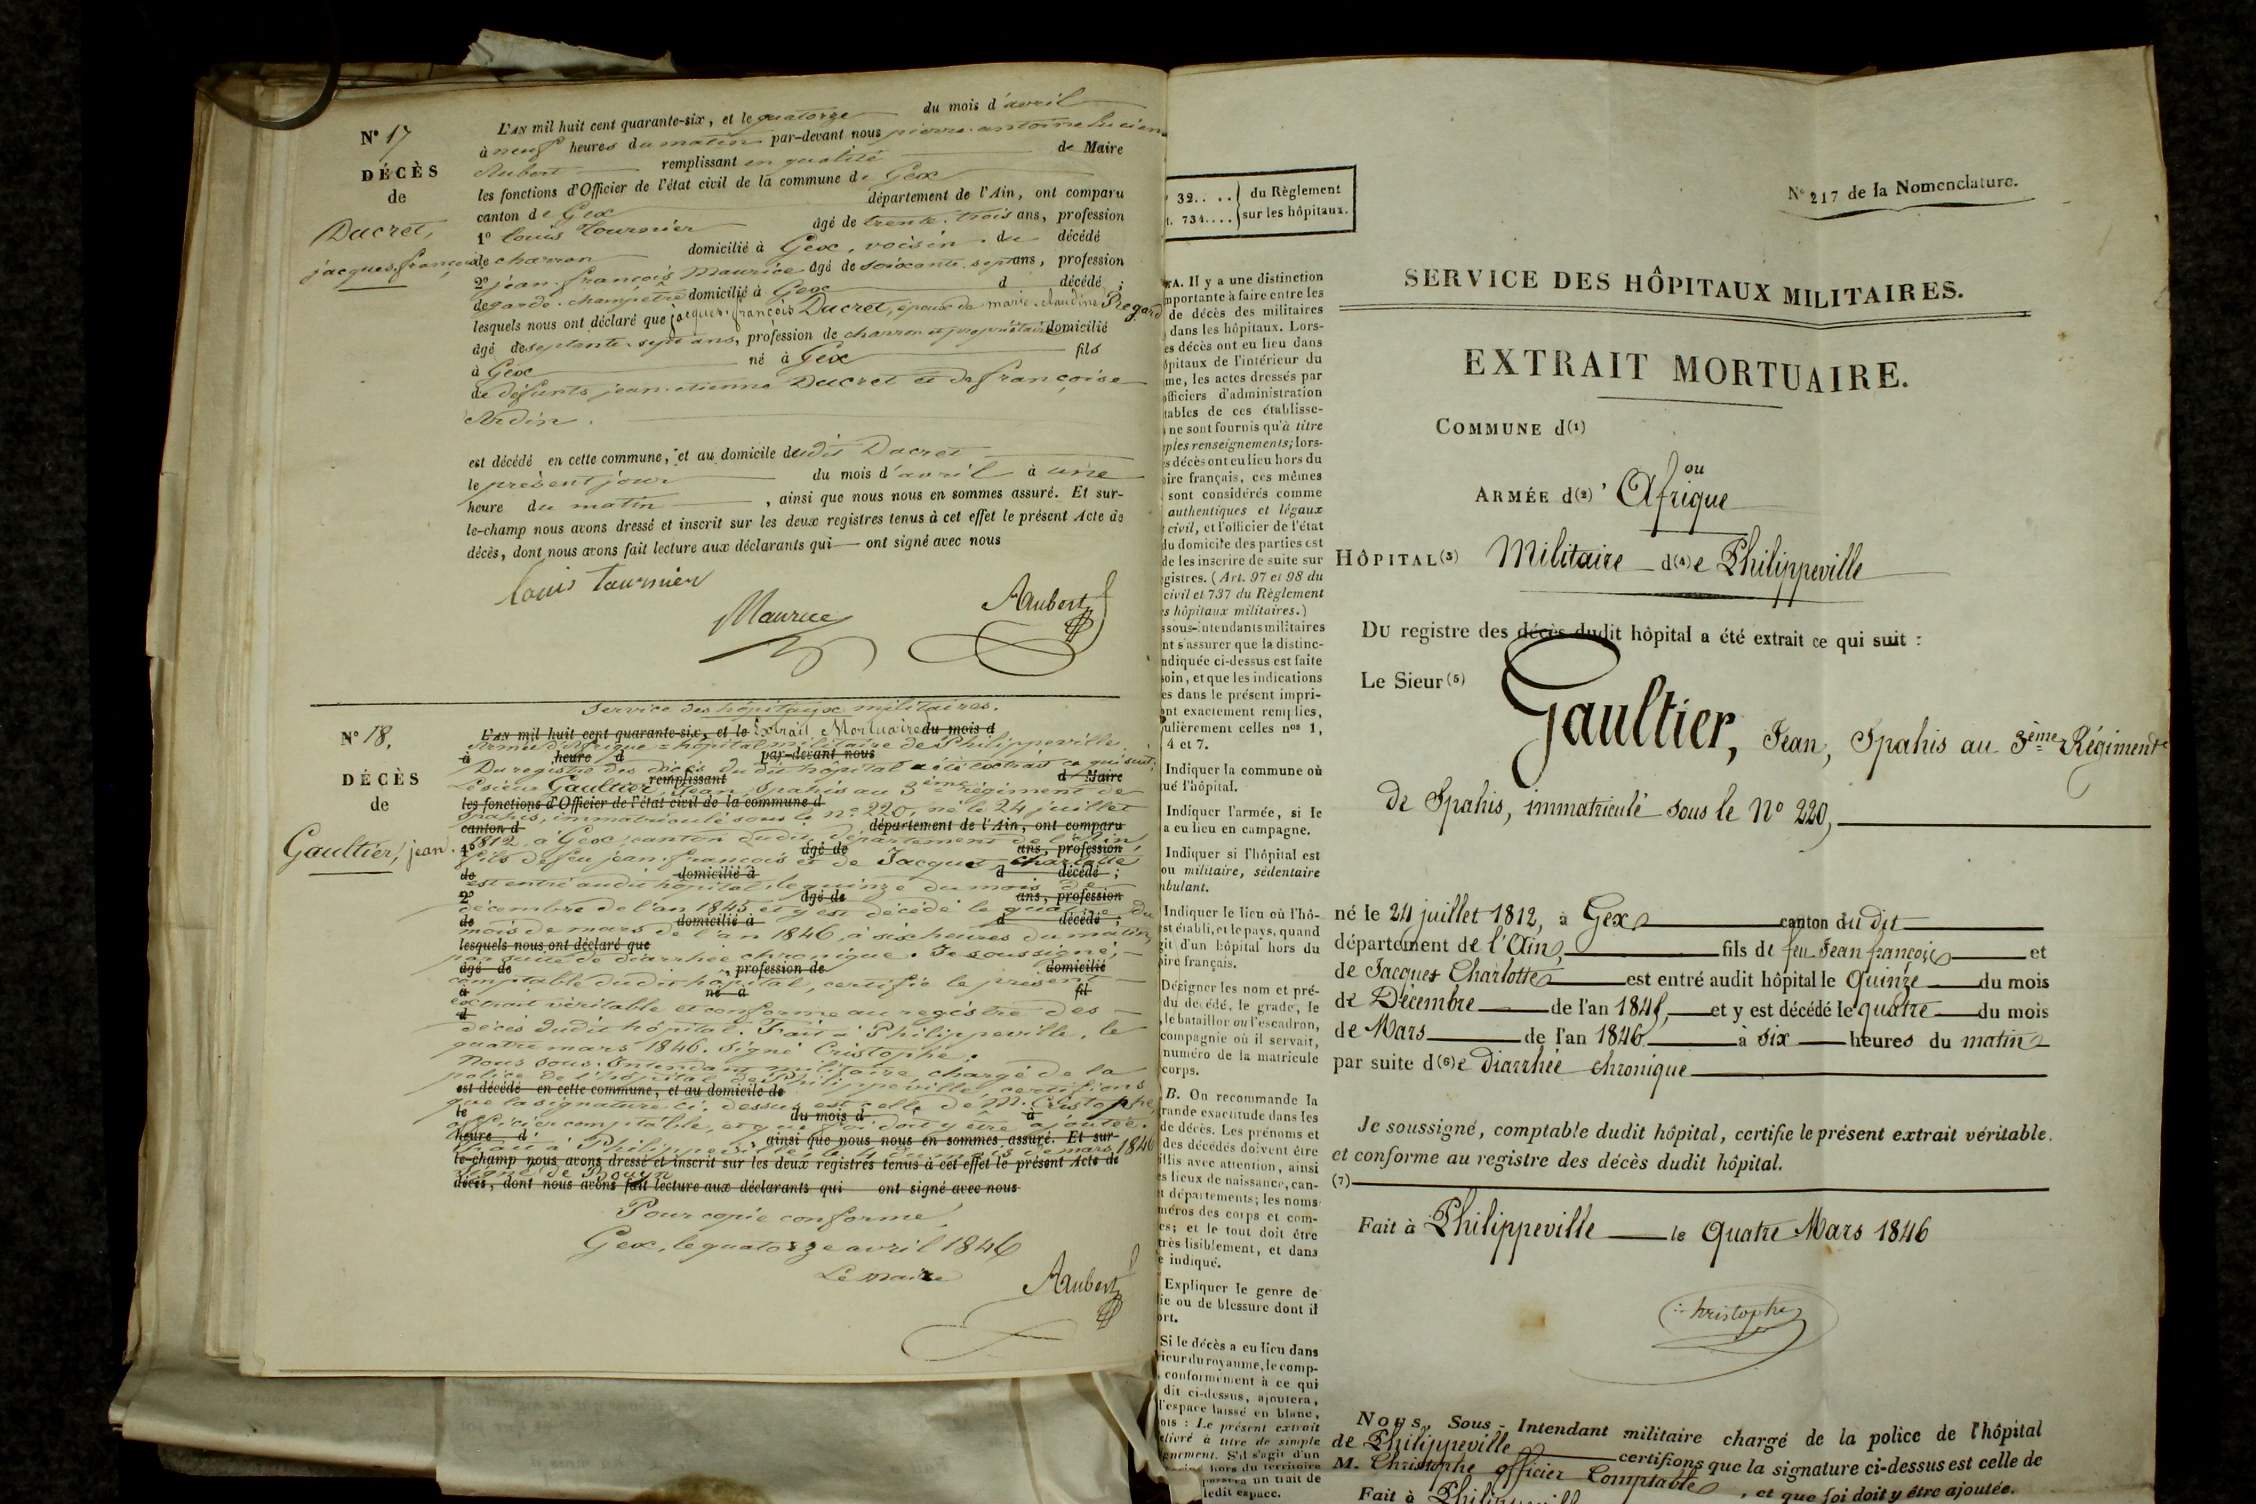 N° 17
DÉCÈS
de
Ducret,
jacques françois
L'AN mil huit cent quarante-six, et le quatorze du mois d'avril
à neuf heures du matin par-devant nous pierre antoine lucien
Aubert remplissant en qualité de Maire
les fonctions d'Officier de l'état civil de la commune de Gex
canton de Gex département de l'Ain, ont comparu
1° louis tournier âgé de trente-trois ans, profession
de charron domicilié à Gex, voisin du décédé
2° jean françois Maurice âgé de soixante-sept ans, profession
de garde-champêtre domicilié à Gex d décédé ;
lesquels nous ont déclaré que jacques françois Ducret, époux de marie claudine Regard
âgé de septante-sept ans, profession de charron et propriétaire domicilié
à Gex né à Gex fils
de défunts jean-etienne Ducret et de françoise
Ardin.
est décédé en cette commune, et au domicile dudit Ducret
le présent jour du mois d'avril à une
heure du matin, ainsi que nous nous en sommes assuré. Et sur-
le-champ nous avons dressé et inscrit sur les deux registres tenus à cet effet le présent Acte de
décès, dont nous avons fait lecture aux déclarants qui ont signé avec nous
louis tournier
Maurice
Aubert
N° 18.
DÉCÈS
de
Gaultier, jean.
Service des hôpitaux militaires.
L'AN mil huit cent quarante-six, et le Extrait Mortuaire du mois d
Armée d'Afrique = hôpital militaire de Philippeville.
à heure d par-devant nous
Du registre des décès dudit hôpital a été extrait ce qui suit:
remplissant d Maire
Le sieur Gaultier, Jean, Spahis au 3ème régiment de
les fonctions d'Officier de l'état civil de la commune d
Spahis, immatriculé sous le n° 220, né le 24 juillet
canton d département de l'Ain, ont comparu
1812, à Gex, canton dudit, département de l'ain,
1° âgé de ans, profession
fils de feu jean-françois et de Jacquet Charlotte
de domicilié à d décédé ;
est entré audit hôpital le quinze du mois de
2° âgé de ans, profession
décembre de l'an 1845 et y est décédé le quatre du
de domicilié à d décédé ;
mois de mars de l'an 1846, à six heures du matin
lesquels nous ont déclaré que
par suite de diarrhée chronique. Je soussigné,
âgé de , profession de domicilié
comptable dudit hôpital, certifie le présent
à né à fil
extrait véritable et conforme au registre des
d
décès dudit hôpital. Fait à Philippeville, le
quatre mars 1846. Signé Cristophe.
Nous Sous-Intendant militaire chargé de la
police de l'hôpital de Philippeville certifions
est décédé en cette commune, et au domicile de
que la signature ci-dessus est celle de M. Cristophe
le du mois d à
officier comptable, et que foi doit y être ajoutée.
heure d , ainsi que nous nous en sommes assuré. Et sur-
Fait à Philippeville, le 4 du mois de mars 1846
le-champ nous avons dressé et inscrit sur les deux registres tenus à cet effet le présent Acte de
décès, dont nous avons fait lecture aux déclarants qui ont signé avec nous
Pour copie conforme,
Gex, le quatorze avril 1846
Le maire
Aubert
32.... du Règlement
t. 734.... sur les hôpitaux.
A. Il y a une distinction
mportante à faire entre les
de décès des militaires
dans les hôpitaux. Lors-
es décès ont eu lieu dans
ôpitaux de l'intérieur du
me, les actes dressés par
officiers d'administration
tables de ces établisse-
ne sont fournis qu'à titre
ples renseignements; lors-
s décès ont eu lieu hors du
oire français, ces mêmes
sont considérés comme
authentiques et légaux
civil, et l'officier de l'état
du domicile des parties est
de les inscrire de suite sur
gistres. (Art. 97 et 98 du
civil et 737 du Règlement
s hôpitaux militaires.)
sous-intendants militaires
nt s'assurer que la distinc-
ndiquée ci-dessus est faite
soin, et que les indications
es dans le présent impri-
ont exactement remplies,
ulièrement celles nos 1,
4 et 7.
Indiquer la commune où
ué l'hôpital.
Indiquer l'armée, si le
a eu lieu en campagne.
Indiquer si l'hôpital est
ou militaire, sédentaire
nbulant.
Indiquer le lieu où l'hô-
est établi, et le pays, quand
git d'un hôpital hors du
oire français.
Désigner les nom et pré-
du décédé, le grade, le
le bataillon ou l'escadron,
compagnie où il servait,
numéro de la matricule
corps.
B. On recommande la
rande exactitude dans les
de décès. Les prénoms et
des décédés doivent être
illis avec attention, ainsi
es lieux de naissance, can-
t départements; les noms
méros des corps et com-
es; et le tout doit être
très lisiblement, et dans
e indiqué.
Expliquer le genre de
die ou de blessure dont il
ort.
Si le décès a eu lieu dans
rieur du royaume, le comp-
conformément à ce qui
dit ci-dessus, ajoutera,
l'espace laissé en blanc,
ots : Le présent extrait
élivré à titre de simple
gnement. S'il s'agit d'un
hors du territoire
un trait de
ledit espace.
N° 217 de la Nomenclature.
SERVICE DES HÔPITAUX MILITAIRES.
EXTRAIT MORTUAIRE.
COMMUNE d(1)
ou
ARMÉE d(2) 'Afrique
HÔPITAL(3) Militaire d(4)e Philippeville
DU registre des décès dudit hôpital a été extrait ce qui suit :
Le Sieur(5) Gaultier, Jean, Spahis au 3ème Régiment
de Spahis, immatriculé sous le N° 220,
né le 24 juillet 1812, à Gex canton du dit
département de l'Ain, fils de feu Jean françois et
de Jacquet Charlotte est entré audit hôpital le Quinze du mois
de Décembre de l'an 1845, et y est décédé le quatre du mois
de Mars de l'an 1846 à six heures du matin
par suite d(6)e Diarrhée chronique
Je soussigné, comptable dudit hôpital, certifie le présent extrait véritable.
et conforme au registre des décès dudit hôpital.
(7)
Fait à Philippeville le Quatre Mars 1846
Christophe
Nous, Sous-Intendant militaire chargé de la police de l'hôpital
de Philippeville certifions que la signature ci-dessus est celle de
M. Christophe officier Comptable, et que foi doit y être ajoutée.
Fait à Philippeville